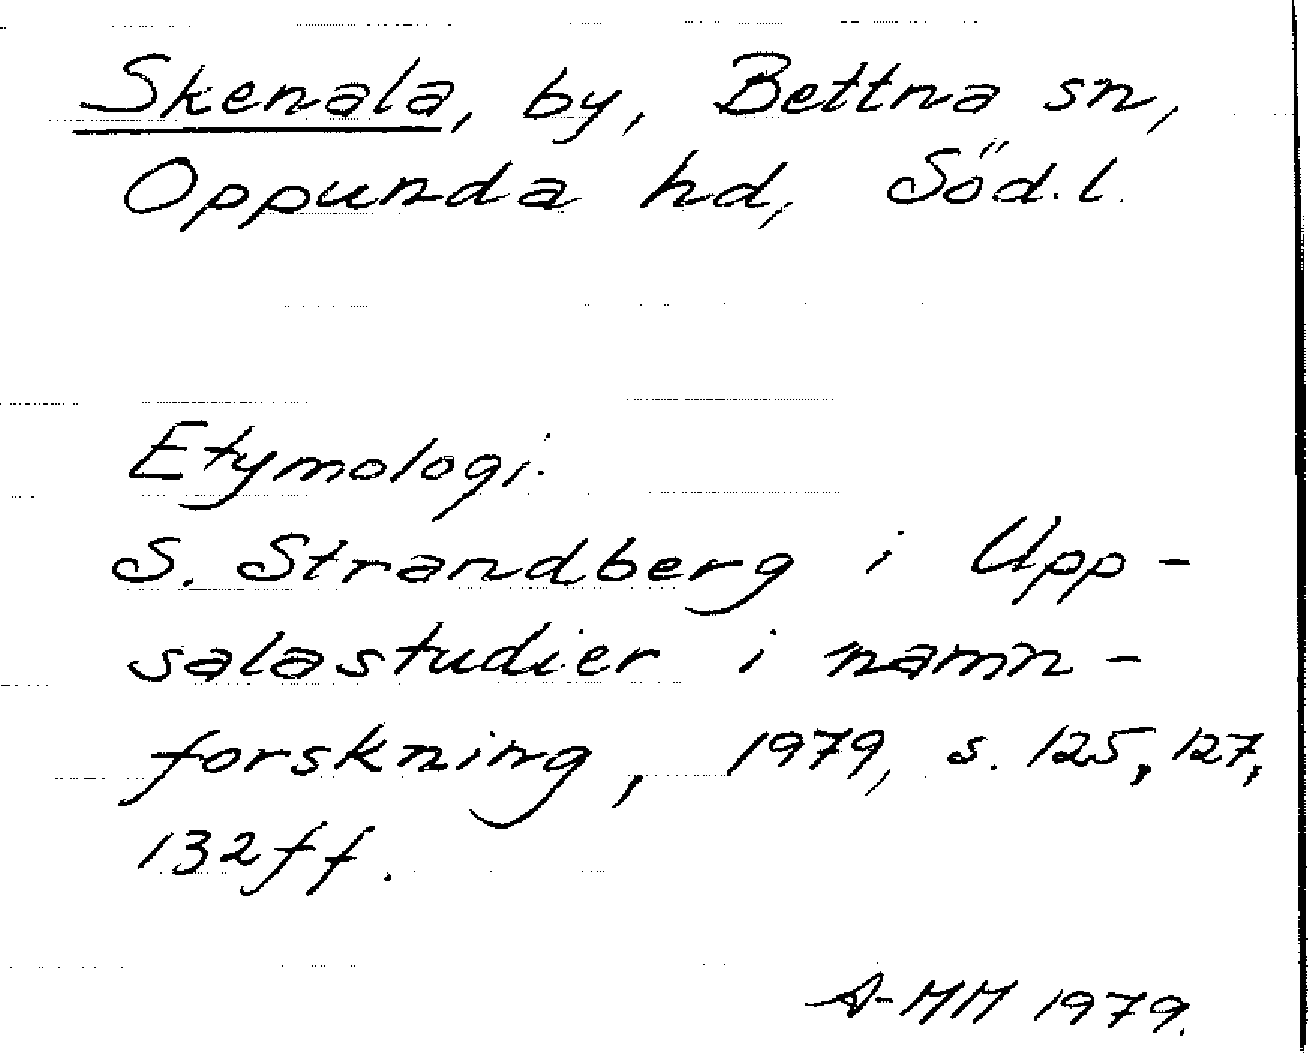 Skenala, by, Bettna sn,
Oppunda hd, Söd.l.
Etymologi.
S. Strandberg i Upp-
salastudier i namn-
forskning, 1979, s. 125, 127,
132ff.
A-MM 1979.